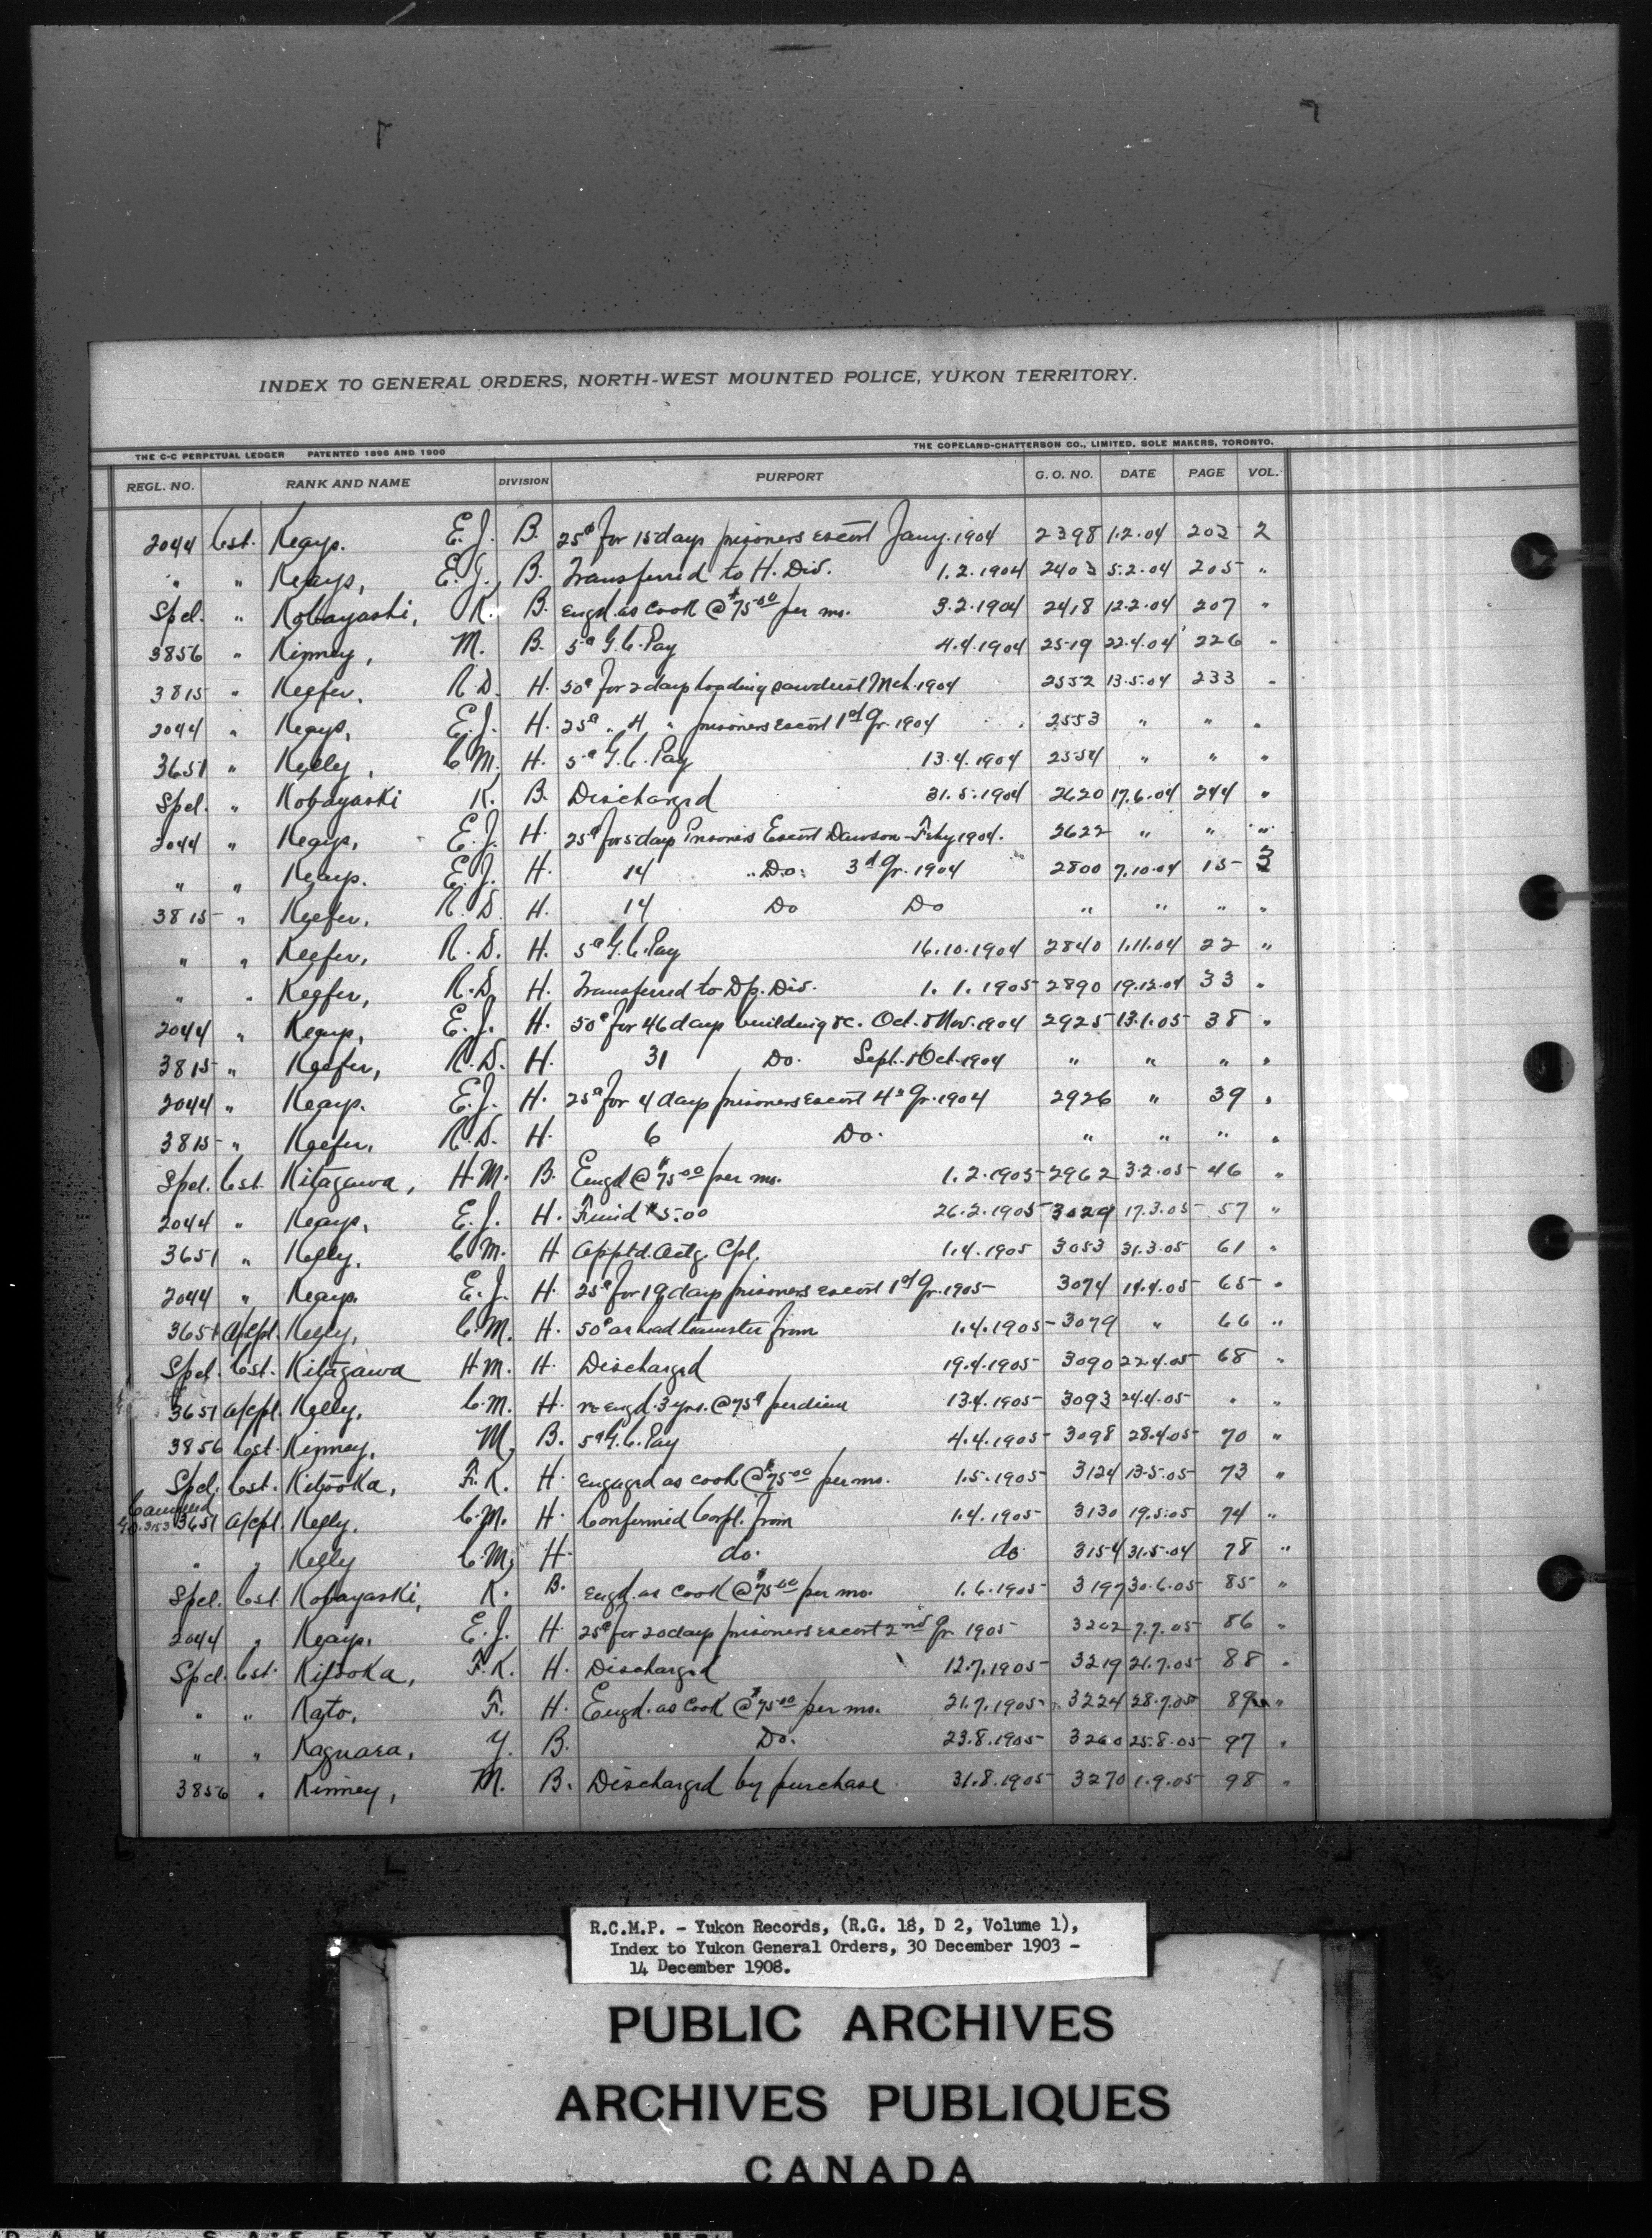 INDEX TO GENERAL ORDERS, NORTH-WEST MOUNTED POLICE, YUKON TERRITORY.
THE C-C PERPETUAL LEDGER PATENTED 1896 AND 1900 THE COPELAND-CHATTERSON CO., LIMITED, SOLE MAKERS, TORONTO.
REGL. NO. RANK AND NAME DIVISION PURPORT G. O. NO. DATE PAGE VOL.
2044 Cst. Keays. E. J. B. 25¢ for 15 days prisoners escort Jany. 1904 2398 1.2.04 203 2
" " Keays, E. J., B. Transferred to H. Div. 1.2.1904 2403 5.2.04 205 "
Spcl. " Kobayashi, K. B. engd. as cook @ $75.00 per mo. 3.2.1904 2418 12.2.04 207 "
3856 " Kinney, M. B. 5¢ G. C. Pay 4.4.1904 2519 22.4.04 226 "
3815 " Keefer, R. D. H. 50¢ for 2 days loading sawdust Mch. 1904 2552 13.5.04 233 "
2044 " Keays, E. J. H. 25¢ " 4 " prisoners escort 1st Qr. 1904 2553 " " "
3651 " Kelly, C. M. H. 5¢ G. C. Pay 13.4.1904 2554 " " "
Spcl. " Kobayashi K. B. Discharged 31.5.1904 2620 17.6.04 244 "
2044 " Keays, E. J. H. 25¢ for 5 days Prisoners Escort Dawson - Feby 1904. 2622 " " "
" " Keays. E. J. H. 14 " Do. 3d Qr. 1904 2800 7.10.04 15 3
3815 " Keefer, R. D. H. 14 Do Do " " " "
" " Keefer, R. D. H. 5¢ G. C. Pay 16.10.1904 2840 1.11.04 22 "
" " Keefer, R. D. H. Transferred to Dp. Div. 1.1.1905 2890 19.12.04 33 "
2044 " Keays, E. J. H. 50¢ for 46 days building &c. Oct. & Nov. 1904 2925 13.1.05 38 "
3815 " Keefer, R. D. H. 31 Do. Sept. & Oct. 1904 " " " "
2044 " Keays. E. J. H. 25¢ for 4 days prisoners escort 4th Qr. 1904 2926 " 39 "
3815 " Keefer, R. D. H. 6 Do. " " " "
Spcl. Cst. Kitagawa, H. M. B. Engd @ $75.00 per mo. 1.2.1905 2962 3.2.05 46 "
2044 " Keays, E. J. H. Fined $5.00 26.2.1905 3029 17.3.05 57 "
3651 " Kelly, C. M. H Apptd. Actg. Cpl. 1.4.1905 3053 31.3.05 61 "
2044 " Keays. E. J. H. 25¢ for 19 days prisoners escort 1st Qr. 1905 3074 14.4.05 65 "
3651 a/cpl. Kelly, C. M. H. 50¢ as head teamster from 1.4.1905 3079 " 66 "
Spcl. Cst. Kitagawa H. M. H. Discharged 19.4.1905 3090 22.4.05 68 "
3651 a/cpl. Kelly, C. M. H. re engd. 3 yrs. @ 75¢ per diem 13.4.1905 3093 24.4.05 " "
3856 Cst. Kinney, M, B. 5¢ G. C. Pay 4.4.1905 3098 28.4.05 70 "
Spcl. Cst. Kitooka, F. K. H. engaged as cook @ $75.00 per mo. 1.5.1905 3124 13.5.05 73 "
G.O. 3153 3651 a/cpl. Kelly. C. M. H. Confirmed Corpl. from 1.4.1905 3130 19.5.05 74 "
" " Kelly C. M, H. do. do 3154 31.5.04 78 "
Spcl. Cst. Kobayashi, K. B. engd. as cook @ $75.00 per mo. 1.6.1905 3197 30.6.05 85 "
2044 " Keays, E. J. H. 25¢ for 20 days prisoners escort 2nd Qr. 1905 3202 7.7.05 86 "
Spcl. Cst. Kitooka, F. K. H. Discharged 12.7.1905 3219 21.7.05 88 "
" " Kato, F. H. Engd. as cook @ $75.00 per mo. 21.7.1905 3224 28.7.05 89 "
" " Kaguara, Y. B. Do. 23.8.1905 3260 25.8.05 97 "
3856 " Kinney, M. B. Discharged by purchase 31.8.1905 3270 1.9.05 98 "
R.C.M.P. - Yukon Records, (R.G. 18, D 2, Volume 1),
Index to Yukon General Orders, 30 December 1903 -
14 December 1908.
PUBLIC ARCHIVES
ARCHIVES PUBLIQUES
CANADA